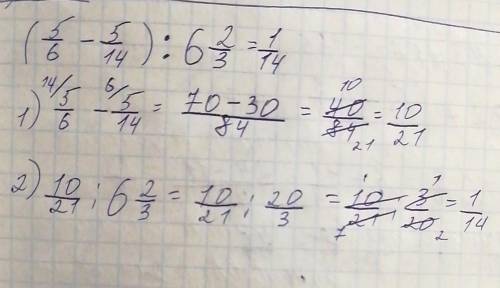 (5/6 - 5/14) : 6 2/3 = 1/14
1) 14/ 5/6 - 6/ 5/14 = 70-30/84 = 10 40/84 21 = 10/21
2) 10/21 : 6 2/3 = 10/21 : 20/3 = 1 10/21 7 · 1 3/20 2 = 1/14